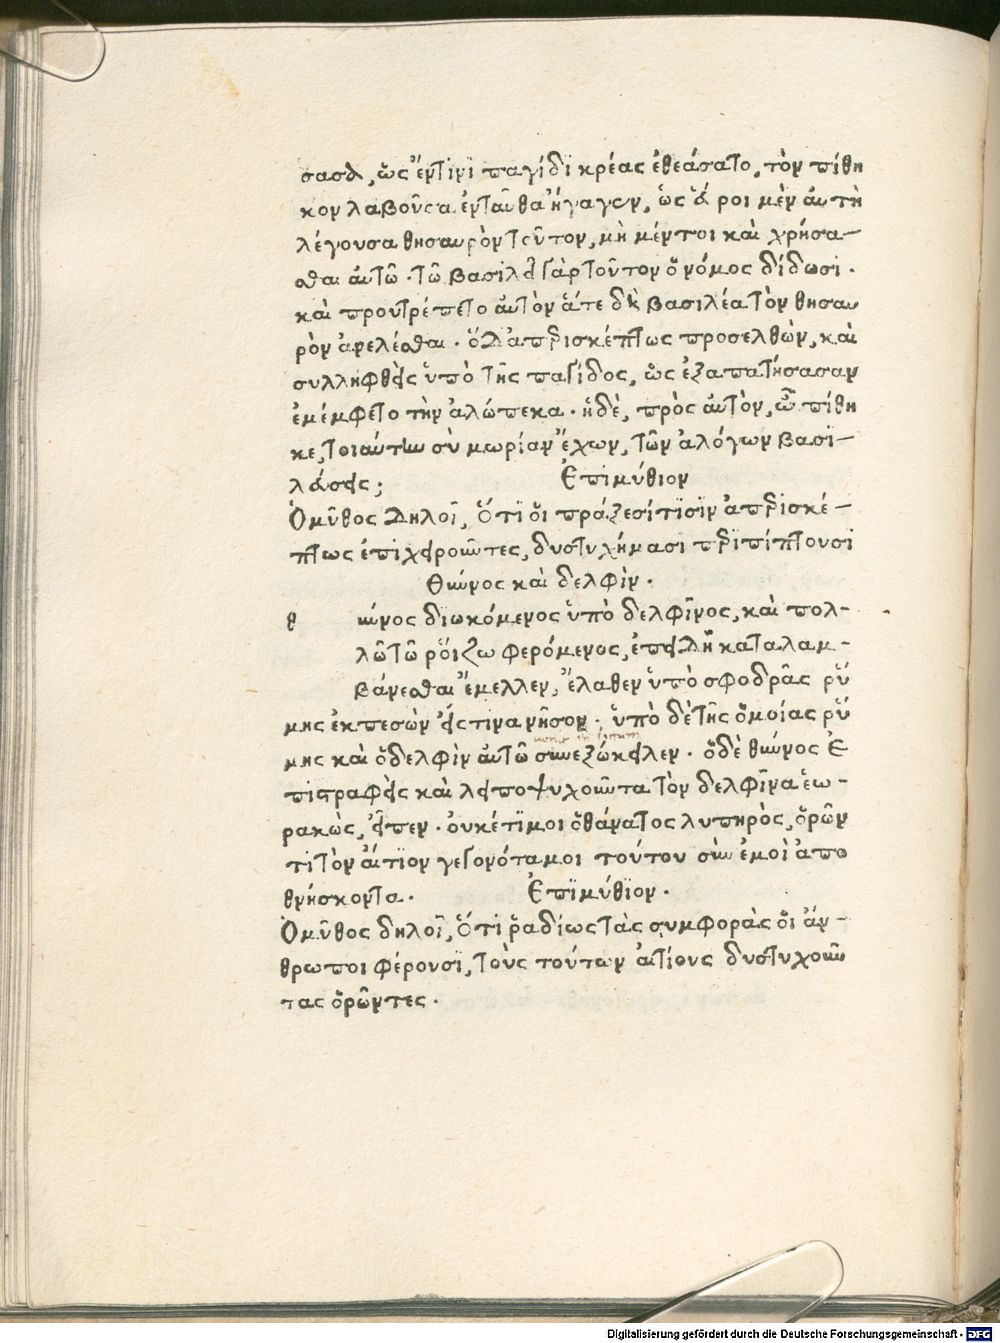 σασα, ὡς ἔν τινι παγίδι κρέας ἐθεάσατο, τὸν πίθη
κον λαβοῦσα ἐνταῦθα ἤγαγεν, ὡς εὕροι μὲν αὐτὴ
λέγουσα θησαυρὸν τοῦτον, μὴ μέντοι καὶ χρήσα-
σθαι αὐτῶ · τῶ βασιλεῖ γὰρ τοῦτον ὁ νόμος δίδωσι ·
καὶ προὐτρέπετο αὐτὸν ἅτε δὴ βασιλέα τὸν θησαυ
ρὸν ἀνελέσθαι · ὁ δ' ἀπερισκέπτως προσελθὼν, καὶ
συλληφθεὶς ὑπὸ τῆς παγίδος, ὡς ἐξαπατήσασαν
ἐμέμφετο τὴν ἀλώπεκα · ἡ δὲ, πρὸς αὐτὸν, ὦ πίθη
κε, τοιαύτην σὺ μωρίαν ἔχων, τῶν ἀλόγων βασι-
λεύσεις; Ἐπιμύθιον
Ὁ μῦθος δηλοῖ, ὅτι οἱ πράξεσί τισιν ἀπερισκέ-
πτως ἐπιχειροῦντες, δυστυχήμασι περιπίπτουσι
Θύννος καὶ δελφὶν ·
θ ύννος διωκόμενος ὑπὸ δελφῖνος, καὶ πολ-
λῶ τῶ ῥοίζω φερόμενος, ἐπειδὴ καταλαμ-
βάνεσθαι ἔμελλεν, ἔλαθεν ὑπὸ σφοδρᾶς ῥύ
μης ἐκπεσὼν εἴς τινα νῆσον · ὑπὸ δὲ τῆς ὁμοίας ῥύ
μης καὶ ὁ δελφὶν αὐτῶ συνεξώκειλεν · ὁ δὲ θύννος ἐ
πιστραφεὶς καὶ λειποψυχοῦντα τὸν δελφῖνα ἑω-
ρακὼς, εἶπεν · οὐκέτι μοι ὁ θάνατος λυπηρὸς, ὁρῶν
τι τὸν αἴτιον γεγονότα μοι τούτου σὺν ἐμοὶ ἀπο
θνήσκοντα. Ἐπιμύθιον ·
Ὁ μῦθος δηλοῖ, ὅτι ῥαδίως τὰς συμφορὰς οἱ ἄν-
θρωποι φέρουσι, τοὺς τούτων αἰτίους δυστυχοῦν
τας ὁρῶντες ·
Digitalisierung gefördert durch die Deutsche Forschungsgemeinschaft - DFG